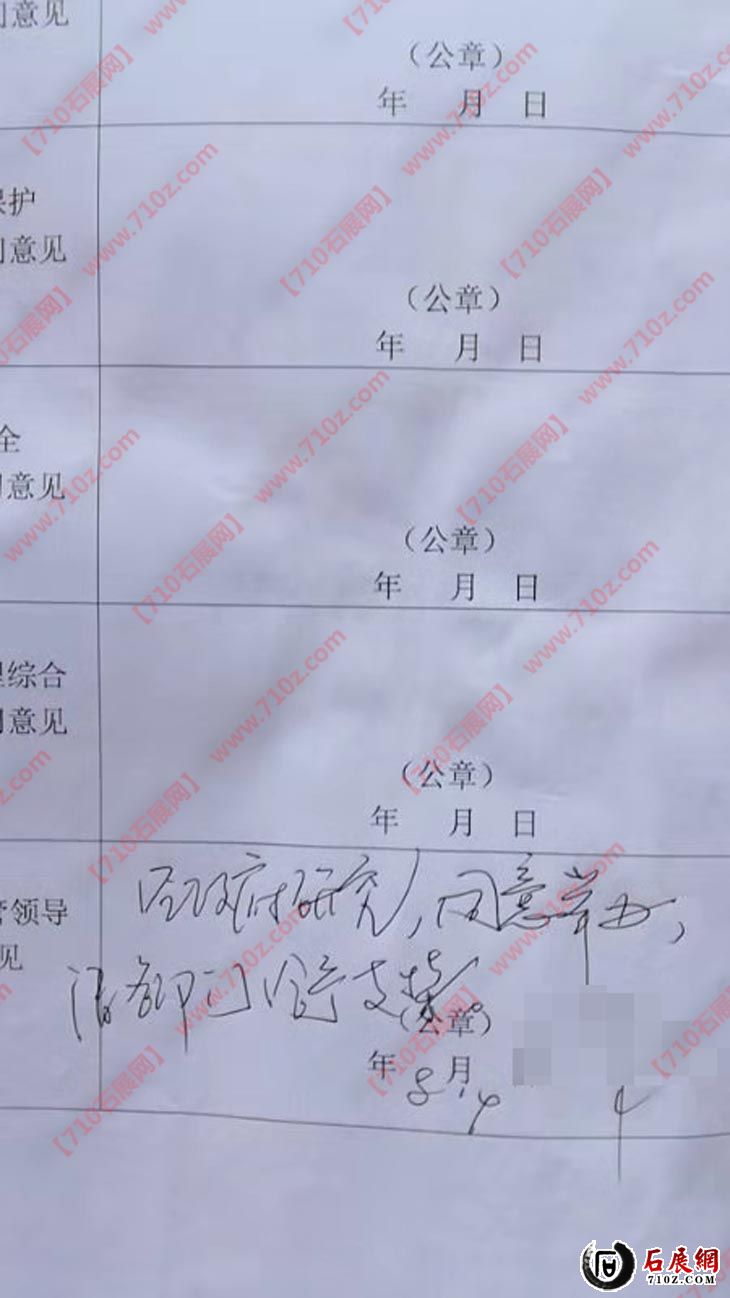 意见
（公章）
年 月 日
保护
门意见
（公章）
年 月 日
全
门意见
（公章）
年 月 日
理综合
门意见
（公章）
年 月 日
管领导
见
区政府研究，同意举办，
请各部门给予支持。
（公章）
年 8月.4
【710石展网】 www.710z.com
石展網
710Z.COM